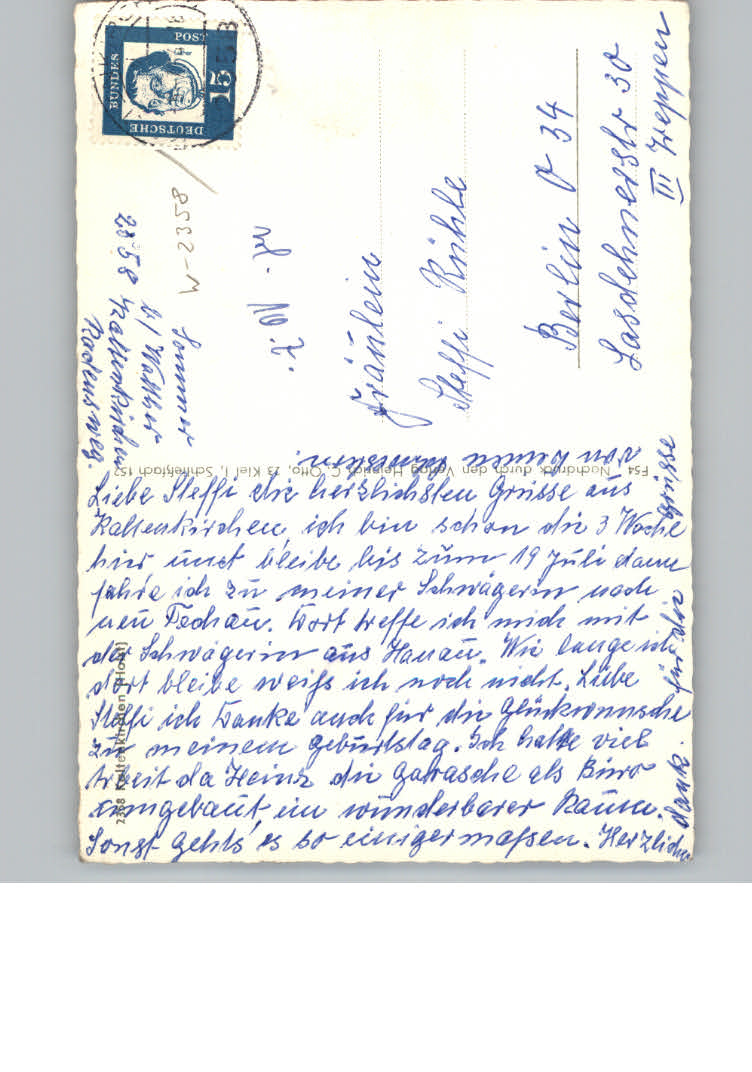 DEUTSCHE
BUNDES
POST
15
W-2358
Sommer
b/ Walther
2358 Kaltenkirchen
Radensweg.
Fräulein
Steffi Rühle
Berlin O 34
Lasdehnerstr 30
III Treppen
F54 Nachdruck durch den Verlag Heinrich C. Otto, 23 Kiel 1, Schließfach 152
2358 Kaltenkirchen (Holst)
Liebe Steffi die herzlichsten Grüsse aus
Kaltenkirchen, ich bin schon die 3 Woche
hier und bleibe bis zum 19 Juli dann
fahre ich zu meiner Schwägerin nach
neu Techau. Dort treffe ich mich mit
der Schwägerin aus Hanau. Wie lange ich
dort bleibe weiss ich noch nicht. Liebe
Steffi ich Danke auch für die Glückwunsche
zu meinem Geburtstag. Ich hatte viel
Arbeit da Heinz die Garasche als Büro
umgebaut, ein wunderbarer Raum.
Sonst gehts es so einigermassen. Herzlichen
Dank für die Grüsse
von